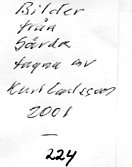 Bilder
från
Gårda
tagna av
Kurt Carlsson
2001
224